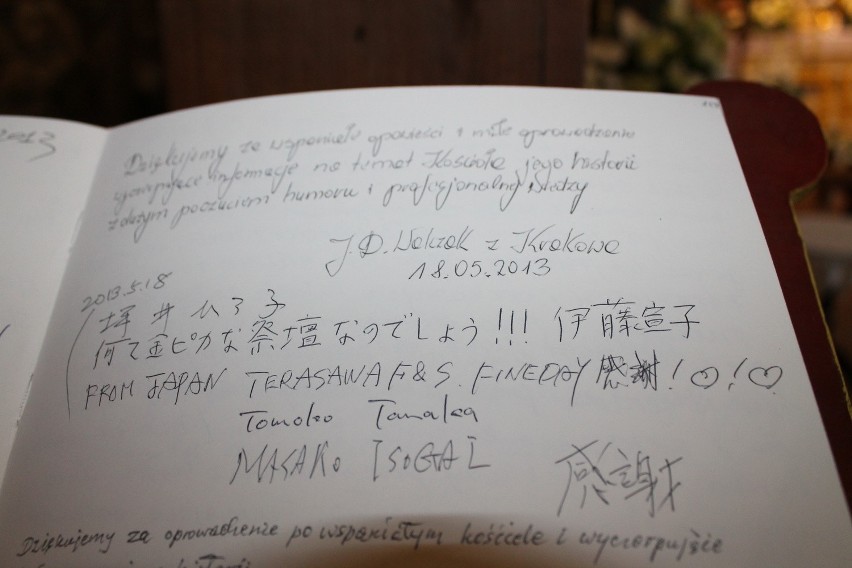 2013
Dziękujemy za wspaniałe opowieści i miłe oprowadzenie
wyczerpujące informacje na temat Kościoła, jego historii
z dużym poczuciem humoru i profesjonalnej wiedzy
J. D. Walczak z Krakowa
18.05.2013
2013.5.18
坪井ひろ子
何て金ピカな祭壇なのでしょう!!! 伊藤宣子
FROM JAPAN TERASAWA F&S. FINEDAY 感謝!♡!♡
Tomoko Tanaka
MASAKo ISoGAI
感謝
Dziękujemy za oprowadzenie po wspaniałym kościele i wyczerpujące